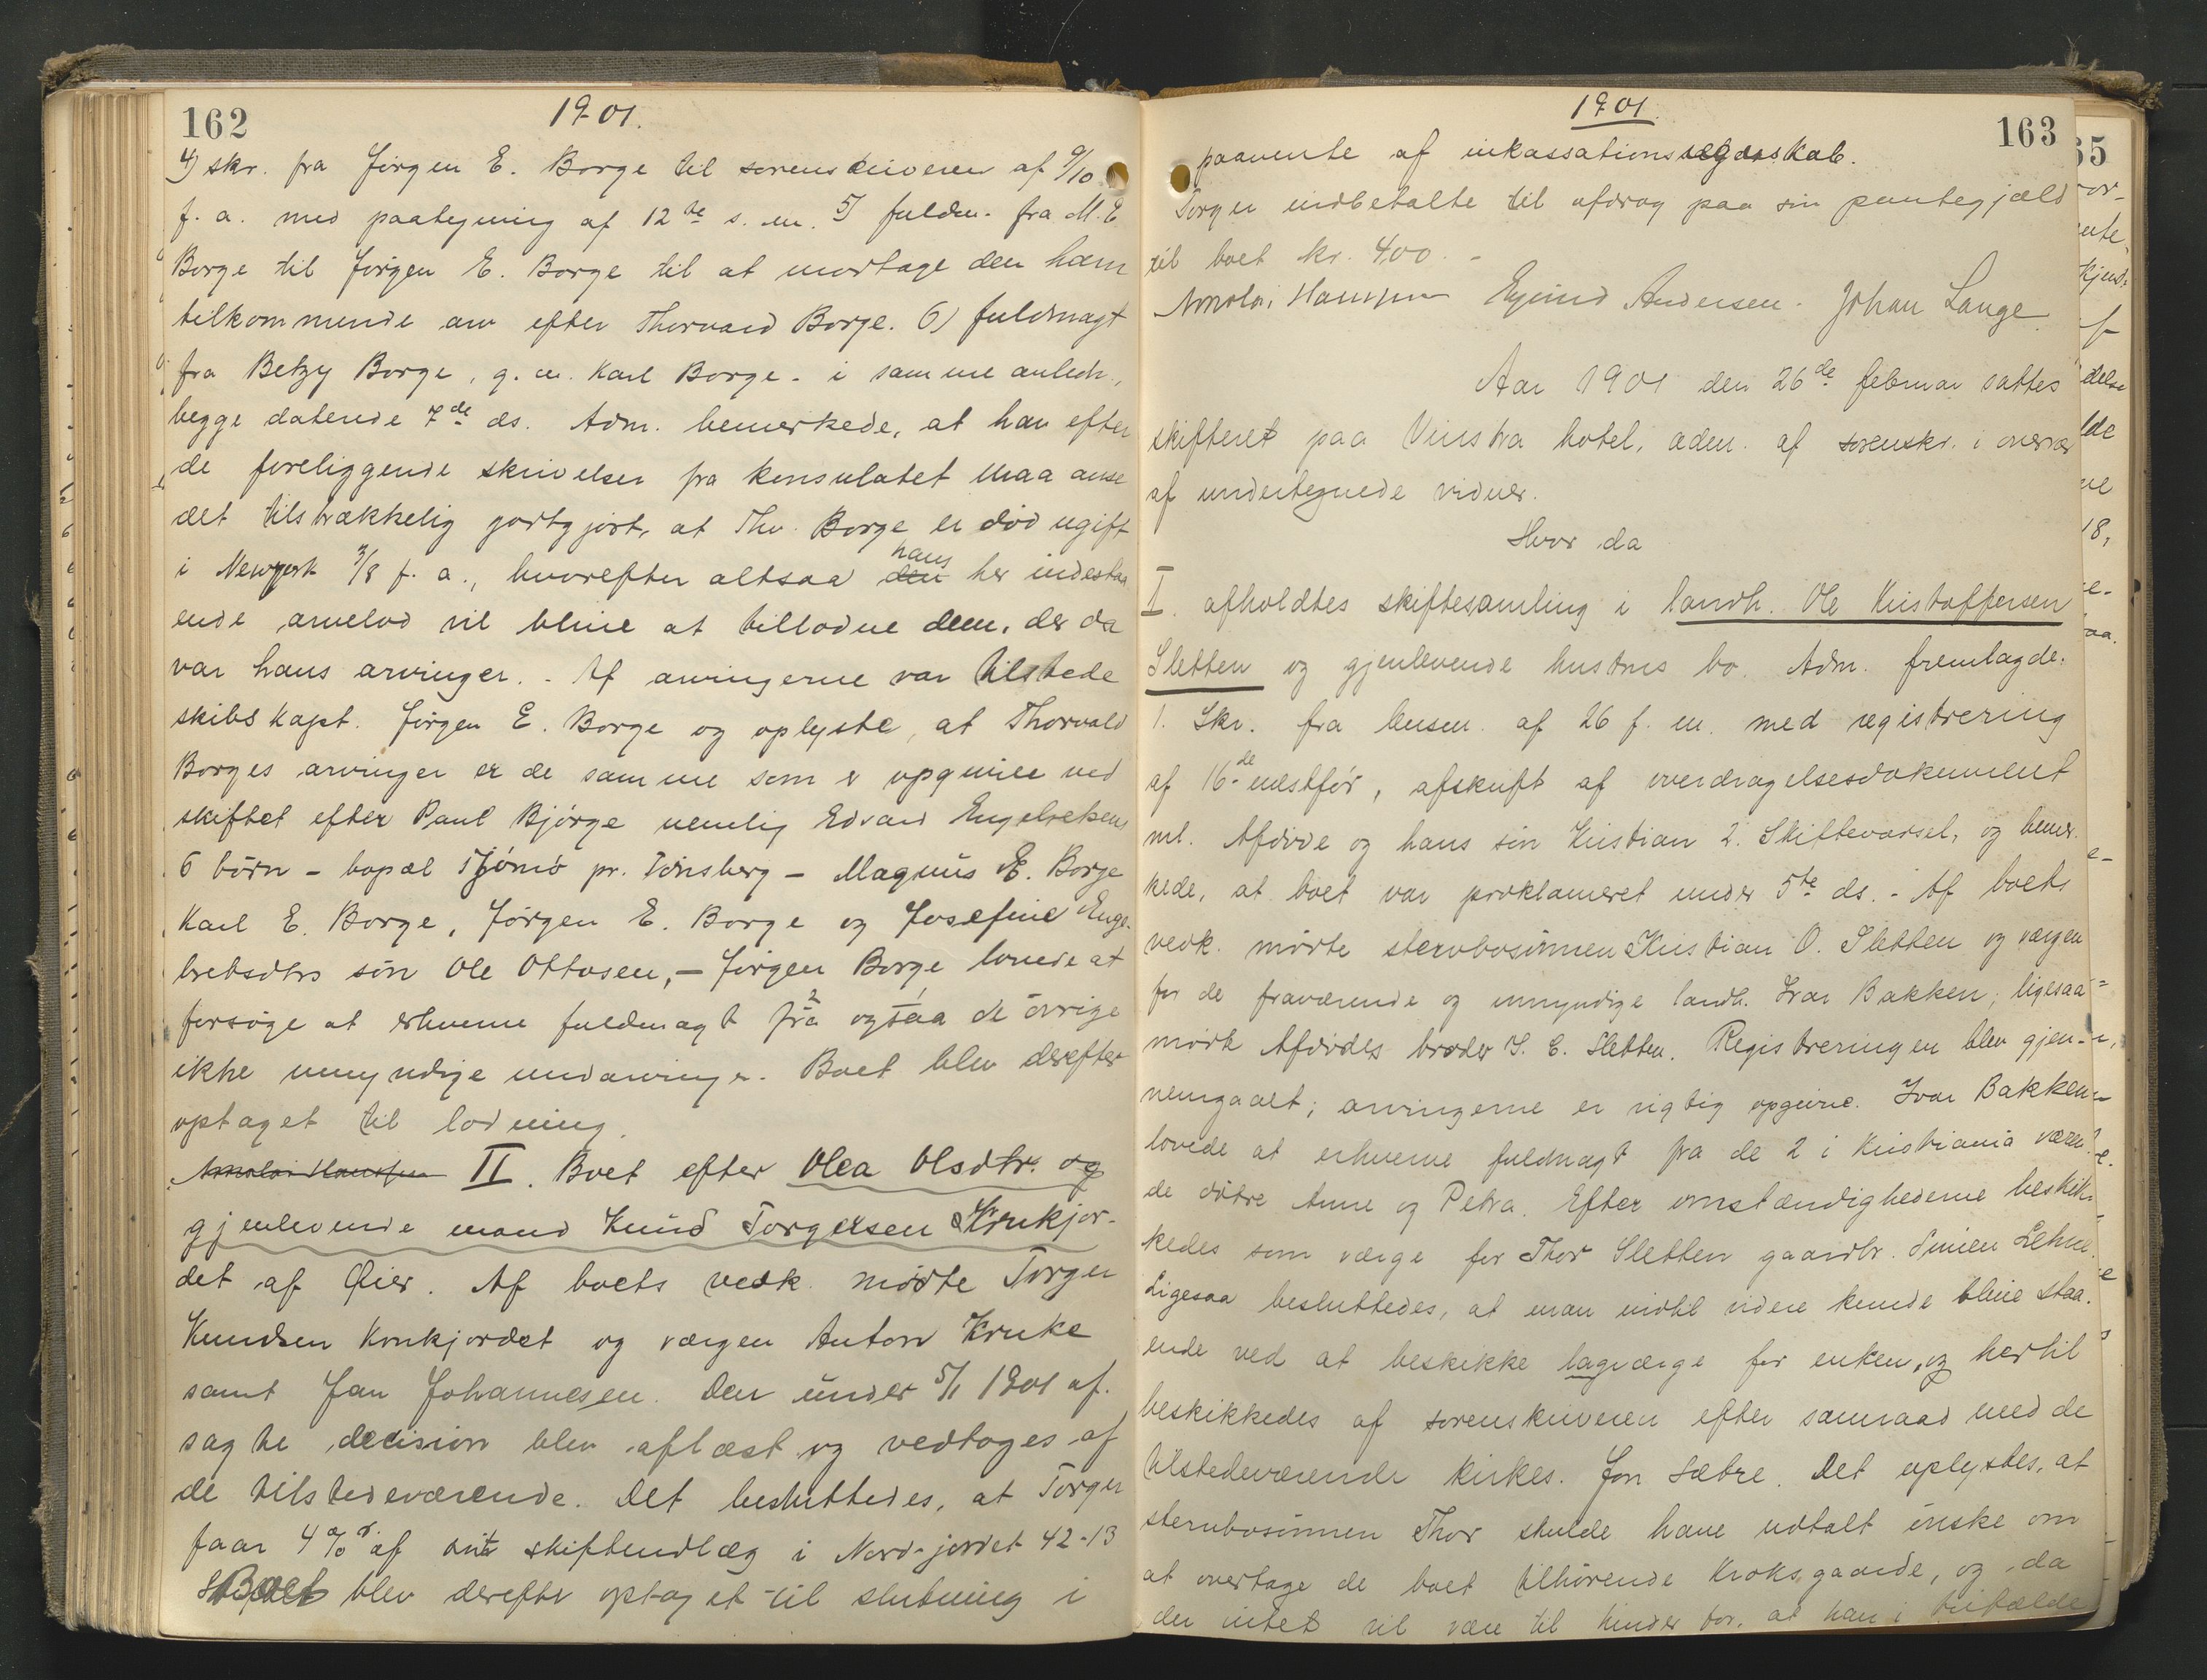 162
1901.
4) skr. fra Jørgen E. Borge til sorenskriveren af 9/10
f. a. med paategning af 12te s. m. 5) fuldm. fra M. E.
Borge til Jørgen E. Borge til at mottage den ham
tilkommende arv efter Thorvard Borge. 6) fuldmagt
fra Betzy Borge, g. m. Karl Borge. i samme anledn.,
begge daterede 7de ds. Adm. bemerkede, at han efter
de foreliggende skrivelser fra konsulatet maa anse
det tilstrækkelig godtgjort, at Thv. Borge er død ugift
i Newyork 3/8 f. a., hvorefter altsaa den hans her indestaa
ende arvelod vil blive at tillodne dem, der da
var hans arvinger. - Af arvingerne var tilstede
skibskapt. Jørgen E. Borge og oplyste, at Thorvald
Borges arvinger er de samme som er opgivne ved
skiftet efter Paul Bjørge nemlig Edvard Engebretsens
6 børn - bopæl Tjømø pr. Tønsberg - Magnus E. Borge
Karl E. Borge, Jørgen E. Borge og Josefine Enge-
bretsdtrs søn Ole Ottosen, - Jørgen Borge lovede at
forsøge at erhverve fuldmagt fra ogsaa de øvrige
ikke umyndige medarvinger. Boet blev derefter
optaget til lodning.
II. Boet efter Olea Olsdtr. og
gjenlevende mand Knud Torgersen Krukjor-
det af Øier. Af boets vedk. mødte Torger
Knudsen Krukjordet og værgen Anton Kruke
samt Jan Johannesen. Den under 5/1 1901 af-
sagte decision blev aflæst og vedtoges af
de tilstedeværende. Det besluttedes, at Torger
faar 4 % af sit skifteudlæg i Nord-jordet 42-13
Boet blev derefter optaget til slutning i
1901.
163
paavente af inkassationsregnskab.
Torger indbetalte til afdrag paa sin pantegjæld
til boet kr. 400. -
Ejvind Andersen. Johan Lange
Aar 1901 den 26de februar sattes
skifteret paa Vinstra hotel, adm. af sorenskr. i overvær
af undertegnede vidner.
Hvor da
I. afholdtes skiftesamling i landh. Ole Kristoffersen
Sletten og gjenlevende hustrus bo. Adm. fremlagde:
1. Skr. fra lensm. af 26 f. m. med registrering
af 16de næstfør, afskrift af overdragelsesdokument
ml. Afdøde og hans søn Kristian 2. Skiftevarsel, og bemer-
kede, at boet var proklameret under 5te ds. - Af boets
vedk. mødte stervbosønnen Kristian O. Sletten og værgen
for de fraværende og umyndige landh. Ivar Bakken; ligesaa
mødte Afdødes broder S. C. Sletten. Registreringen blev gjen-
nemgaaet; arvingerne er rigtig opgivne. Ivar Bakken
lovede at erhverve fuldmagt fra de 2 i Kristiania væren-
de døtre Anne og Petra. Efter omstændighederne beskik-
kedes som værge for Thor Sletten gaardbr. Simen Lehne.
Ligesaa besluttedes, at man indtil videre kunde blive staa-
ende ved at beskikke lagværge for enken, og hertil
beskikkedes af sorenskriveren efter samraad med de
tilstedeværende kirkes. Jon Sætre. Det oplystes, at
stervbosønnen Thor skulde have udtalt ønske om
at overtage de boet tilhørende Kroksgaarde, og da
der intet vil være til hinder for, at han i tilfælde